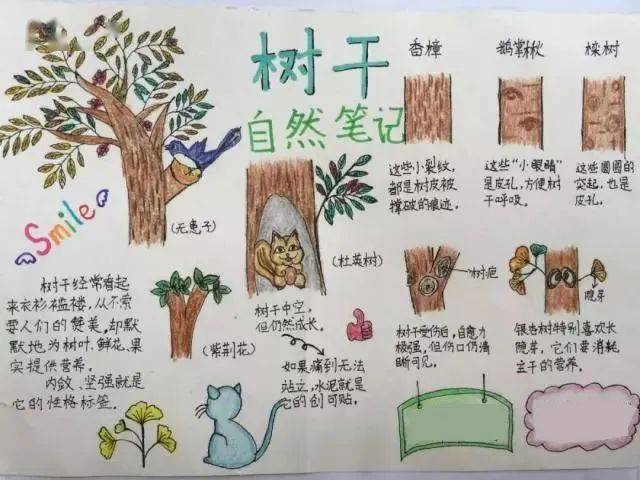 树干
自然笔记
香樟
鹅掌楸
栾树
这些小裂纹,
都是树皮被
撑破的痕迹。
这些“小眼睛”
是皮孔,方便树
干呼吸。
这些圆圆的
突起,也是
皮孔。
(无患子)
Smile
(杜英树)
树干经常看起
来衣衫褴褛,从不需
要人们的赞美,却默
默地为树叶、鲜花、果
实提供营养。
内敛、坚强就是
它的性格标签。
(紫荆花)
树干中空,
但仍然成长。
如果痛到无法
站立,水泥就是
它的创可贴。
树疤
树干受伤后,自愈力
极强,但伤口仍清
晰可见。
隐芽
银杏树特别喜欢长
隐芽,它们要消耗
主干的营养。